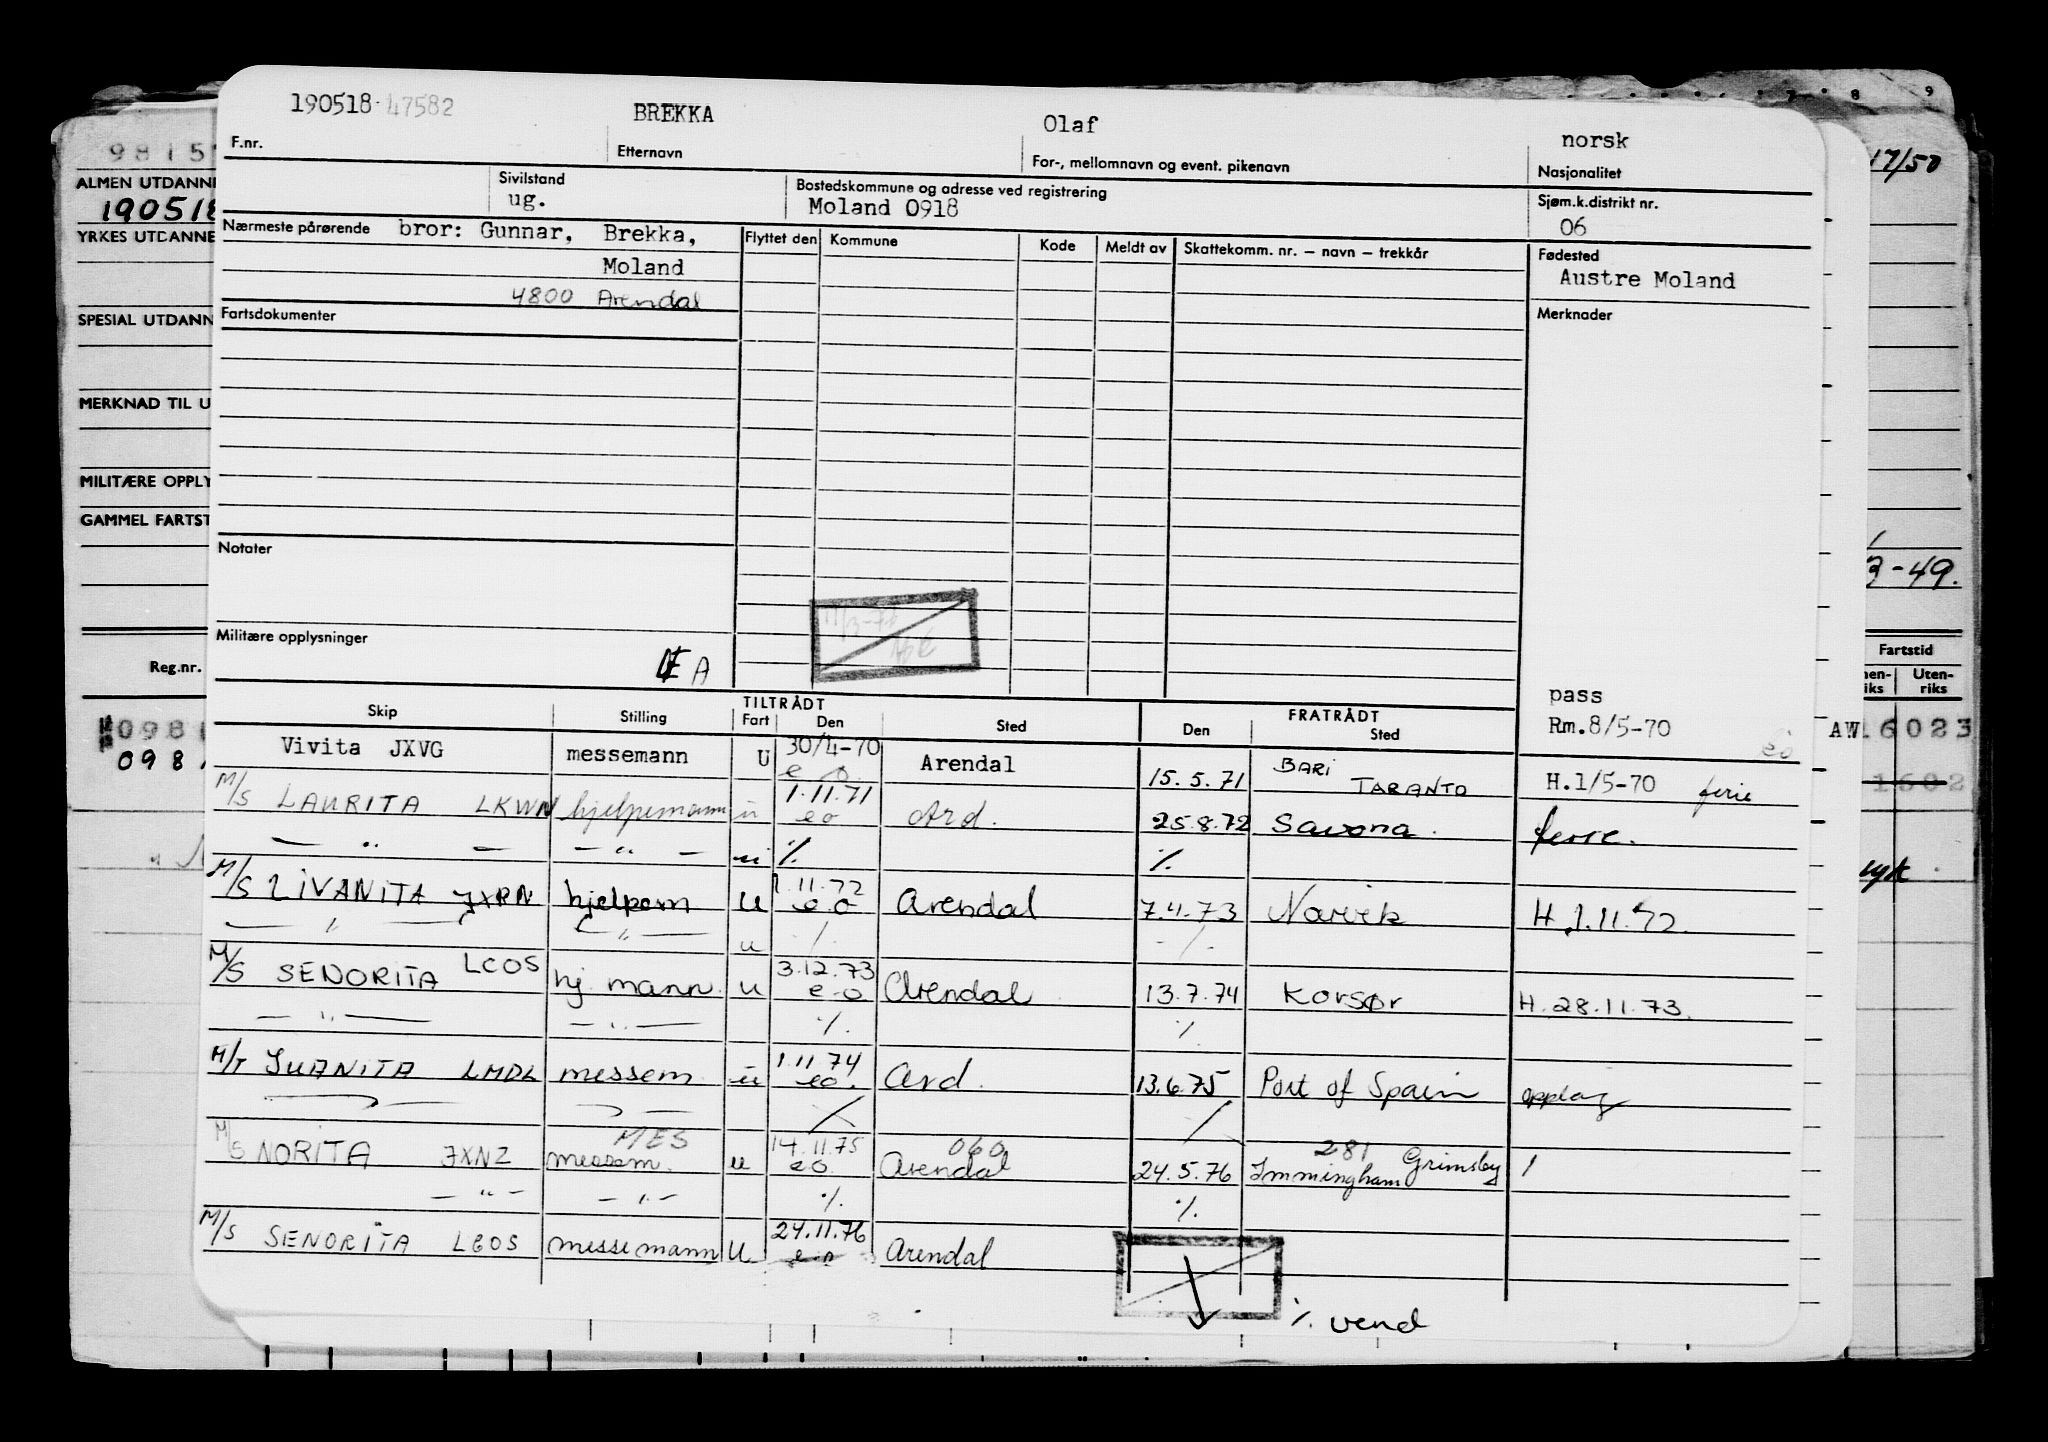 190518 47582 BREKKA Olaf norsk
F.nr. Etternavn For-, mellomnavn og event. pikenavn Nasjonalitet
Sivilstand Bostedskommune og adresse ved registrering Sjøm.k.distrikt nr.
ug. Moland 0918 06
Nærmeste pårørende bror: Gunnar, Brekka, Flyttet den Kommune Kode Meldt av Skattekomm. nr. – navn – trekkår Fødested
Moland Austre Moland
4800 Arendal
Fartsdokumenter Merknader
Notater
Militære opplysninger
A
pass
Rm.8/5-70
TILTRÅDT FRATRÅDT
Skip Stilling Fart Den Sted Den Sted
Vivita JXVG messemann U 30/4-70 Arendal 15.5.71 BARI TARANTO H.1/5-70 ferie
e o.
M/S LAURITA LKWN hjelpemann u 1.11.71 Ard. 25.8.72 Savona. ferie.
eo
— " — — " — u ٪ ٪
M/S LIVANITA JXRN hjelpem u 1.11.72 Arendal 7.4.73 Narvik H.1.11.72.
e o
— " — — " — u ٪ ٪
M/S SENORITA LCOS hj. mann u 3.12.73 Arendal 13.7.74 Korsør H.28.11.73.
e o
— " — — " — ٪ ٪
M/T JUANITA LMDL messem u 1.11.74 Ard. 13.6.75 Port of Spain opplag
eo.
M/S NORITA JXNZ messem. MES u 14.11.75 Arendal 060 24.5.76 Immingham 281 Grimsby
eo
— " — — " — ٪ ٪
M/S SENORITA LCOS messemann U 24.11.76 Arendal
e o
٪ vend
9815
ALMEN UTDANNE
190518
YRKES UTDANNE
SPESIAL UTDANN
MERKNAD TIL U
MILITÆRE OPPLY
GAMMEL FARTST
Reg.nr.
098
098
8 9
17/50
3-49.
Fartstid
nen-riks Uten-riks
AW 16023
1602